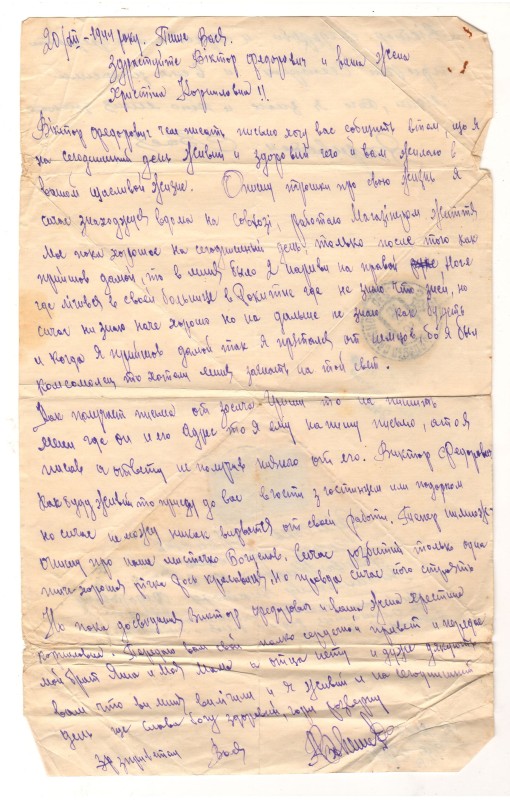 20/XII – 1944 року. Пише Вася.
Здраствуйте Віктор Федорович и ваша жена
Христіна Корниловна!!
Віктор Федорович чем писать письмо хочу вас собщить втом, що я
на сегоднишний день живий и здоровий чего и вам желаю в
вашой щасливой жизне. Опишу трошки про свою жизнь я
сичас знаходжуся дорма на совхозі, работаю Магазінером життя
моє пока хорошое на сегоднишний день, только после того как
прийшов дамой, то в миня було 2 нариви на правой ноге
где лічився в своей больнице в Рокитне где не знаю что з ней, но
сичас низнаю наче хорошо но на дальше не знаю как будеть
и когда я прийшов дамой так я прятался от немцов, бо я був
комсомолец то хотели миня загнать на той свет.
Как получите письма от
мени где он и его адрес то я ему напишу письмо, а то я
писав а ответу не получив никаго от его. Віктор Федорович
как буду живий то приеду до вас вгости з гостинцем или подарком
но сичас не можу никак вирватся от своей работи. Типер
опишу про наше мистечко Богуслав. Сичас розбитий только одна
річка Рось красовиця, но правда сичас його строять
Но пока досвиданя Віктор Федорович и ваша жена Христина
Корниловна. Передаю вам свой сердечной привет и передае
мой брат Яша и моя мама а отца нету и дуже дякують
вам что ви миня вилічили и я живий и на сегоднишний
день ще слава богу здоровий, ходю
Зз зприветом Вася